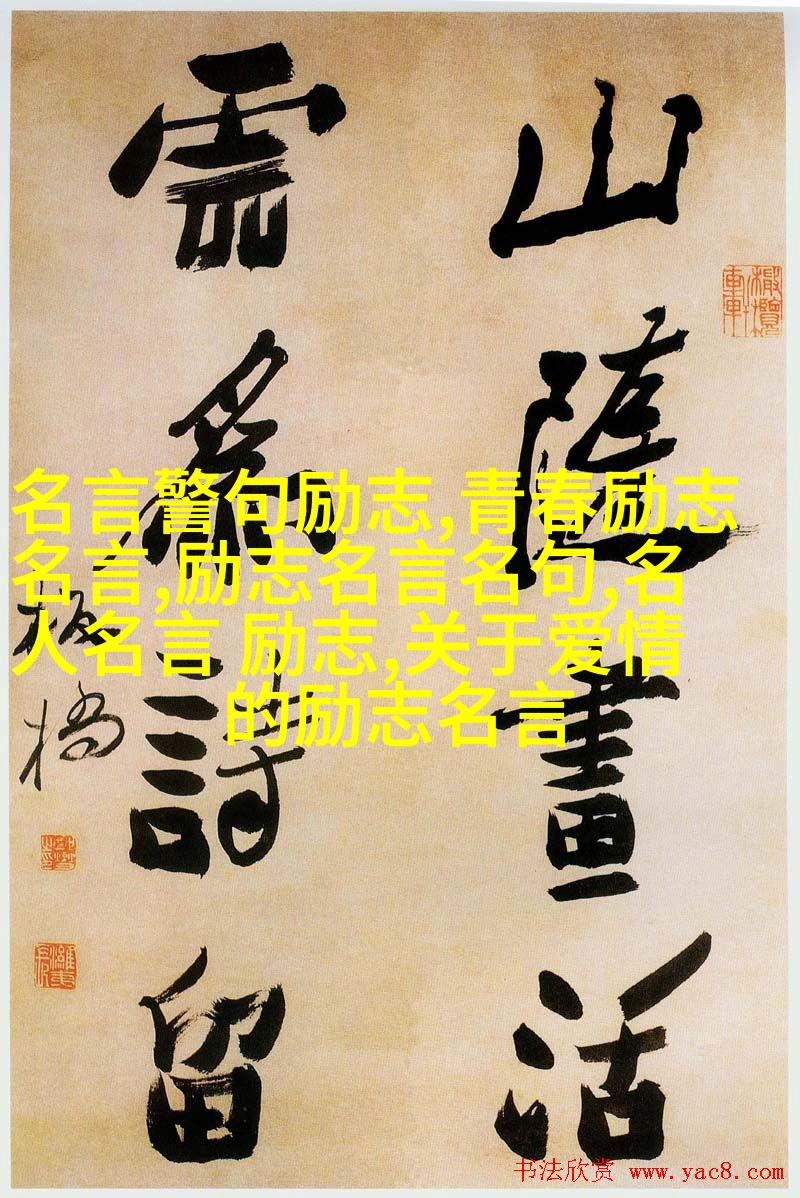 山隨畫活
雲為詩留
板橋
名言警句励志,青春励志
名言,励志名言名句,名
人名言 励志,关于爱情
的励志名言
书法欣赏 www.yac8.com